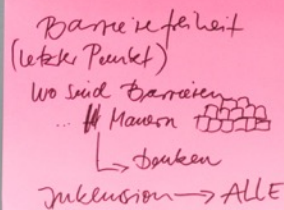 Barrierefreiheit
(letzter Punkt)
Wo sind Barrieren
... Mauern
Denken
Inklusion → ALLE